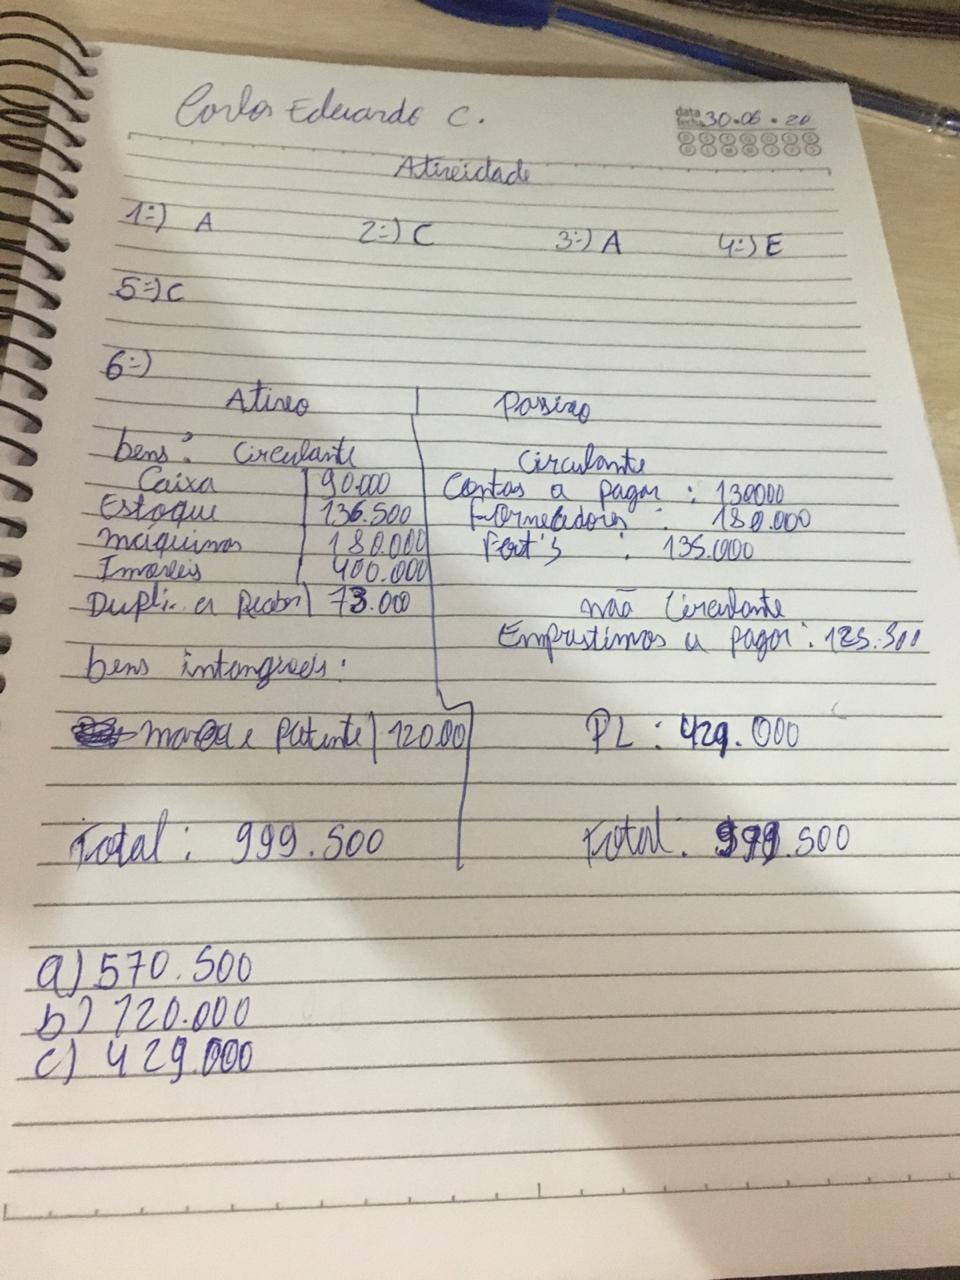 Carlos Eduardo C.
data
fecha 30.06.20
Atividade
1=) A 2=) C 3=) A 4=) E
5=) C
6=)
Ativo Passivo
bens: Circulante Circulante
Caixa 90.000 Contas a pagar: 130000
Estoque 136.500 Fornecedores: 180.000
máquinas 180.000 : 135.000
Imoveis 400.000
Dupli. a Receber 73.000 não Circulante
Emprestimos a pagar: 125.500
bens intangiveis:
marca e Patente 120.00 PL: 429.000
Total: 999.500 Total: 999.500
a) 570.500
b) 120.000
c) 429.000